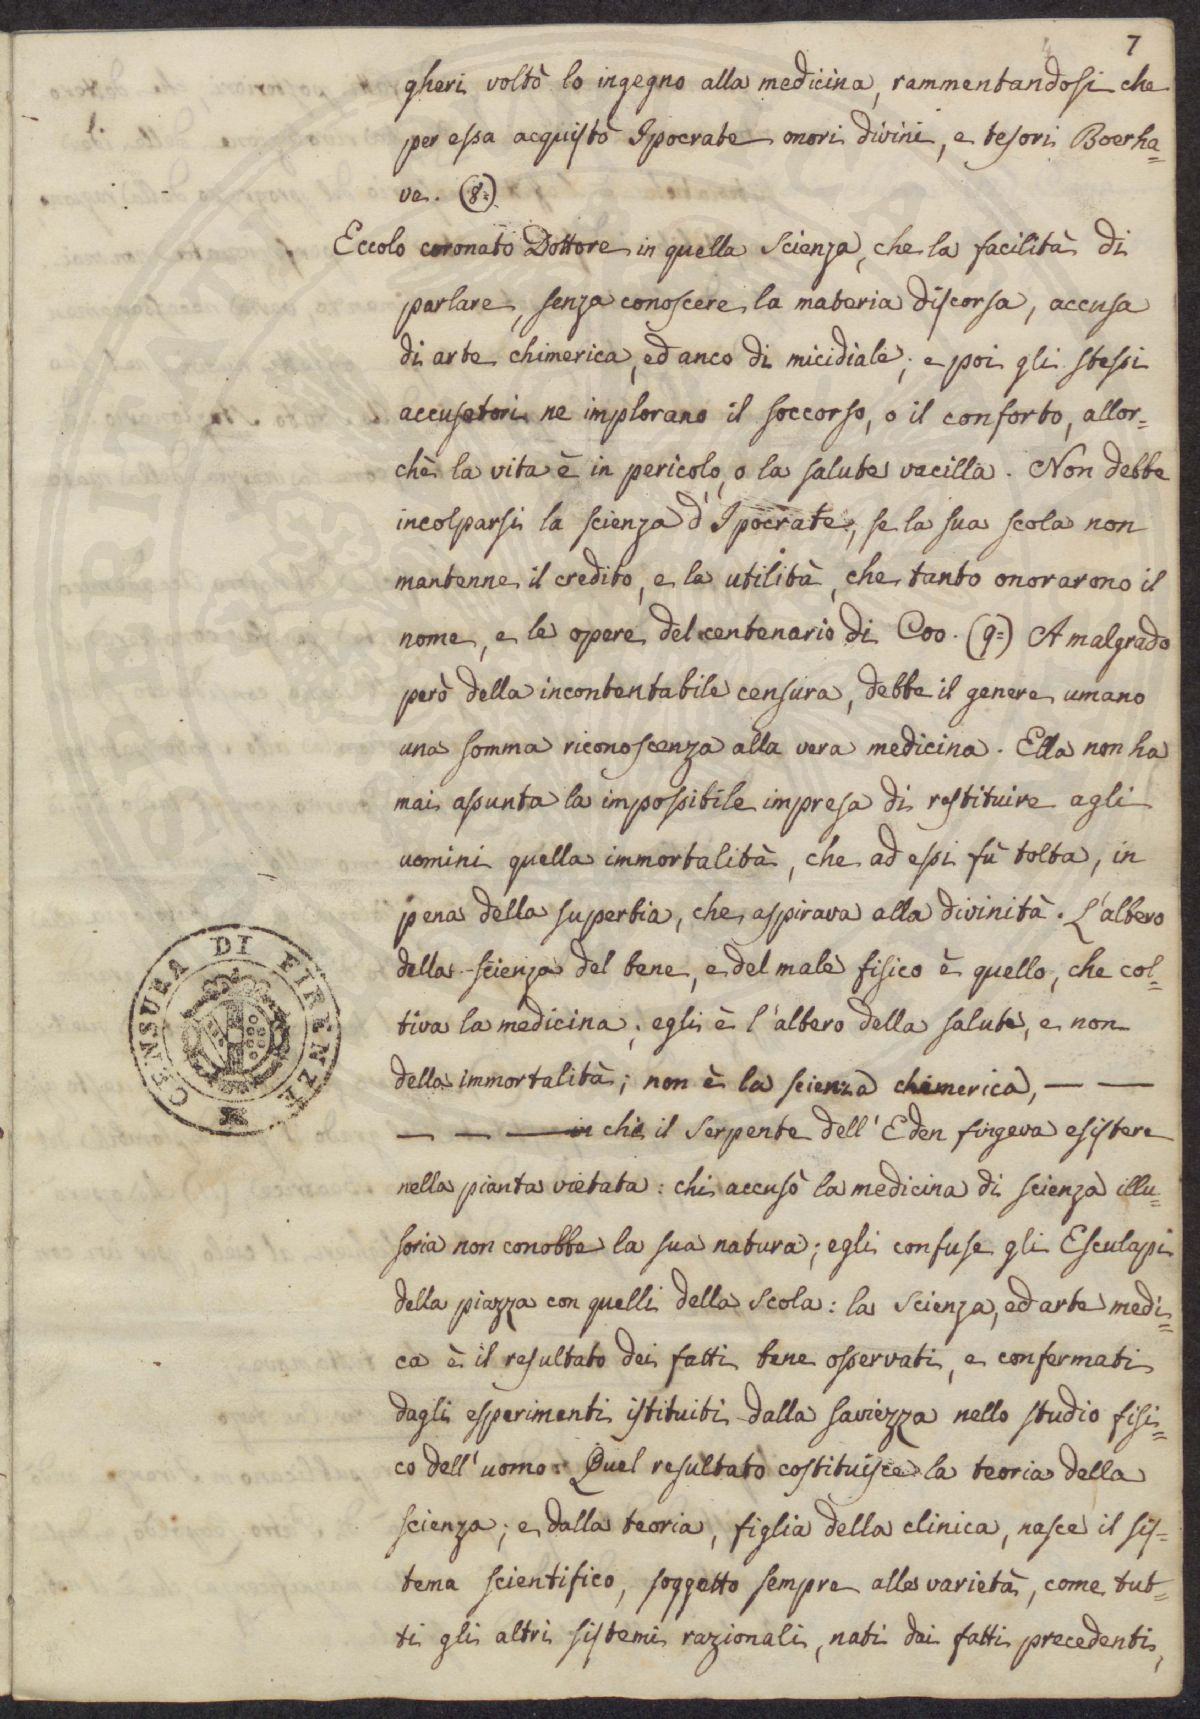 7
gheri voltò lo ingegno alla medicina, rammentandosi che
per essa acquistò Ipocrate onori divini, e tesori Boerha=
ve. (8=)
Eccolo coronato Dottore in quella scienza, che la facilità di
parlare, senza conoscere la materia discorsa, accusa
di arte chimerica, ed anco di micidiale; e poi gli stessi
accusatori ne implorano il soccorso, o il conforto, allor=
chè la vita è in pericolo, o la salute vacilla. Non debbe
incolparsi la scienza d'Ipocrate, se la sua scola non
mantenne il credito, e la utilità, che tanto onorarono il
nome, e le opere del centenario di Coo. (9=) A malgrado
però della incontentabile censura, debbe il genere umano
una somma riconoscenza alla vera medicina. Ella non ha
mai assunta la impossibile impresa di restituire agli
uomini quella immortalità, che ad essi fù tolta, in
pena della superbia, che aspirava alla divinità. L'albero
della scienza del bene, e del male fisico è quello, che col=
tiva la medicina; egli è l'albero della salute, e non
della immortalità; non è la scienza chimerica, — —
— — — in che il Serpente dell'Eden fingeva esistere
nella pianta vietata: chi accusò la medicina di scienza illu=
soria non conobbe la sua natura; egli confuse gli Esculapi
della piazza con quelli della scola: la scienza, ed arte medi=
ca è il resultato dei fatti bene osservati, e confermati
dagli esperimenti istituiti dalla saviezza nello studio fisi=
co dell'uomo. Quel resultato costituisce la teoria della
scienza; e dalla teoria, figlia della clinica, nasce il sis=
tema scientifico, soggetto sempre alle varietà, come tut=
ti gli altri sistemi razionali, nati dai fatti precedenti,
CENSURA DI FIRENZE